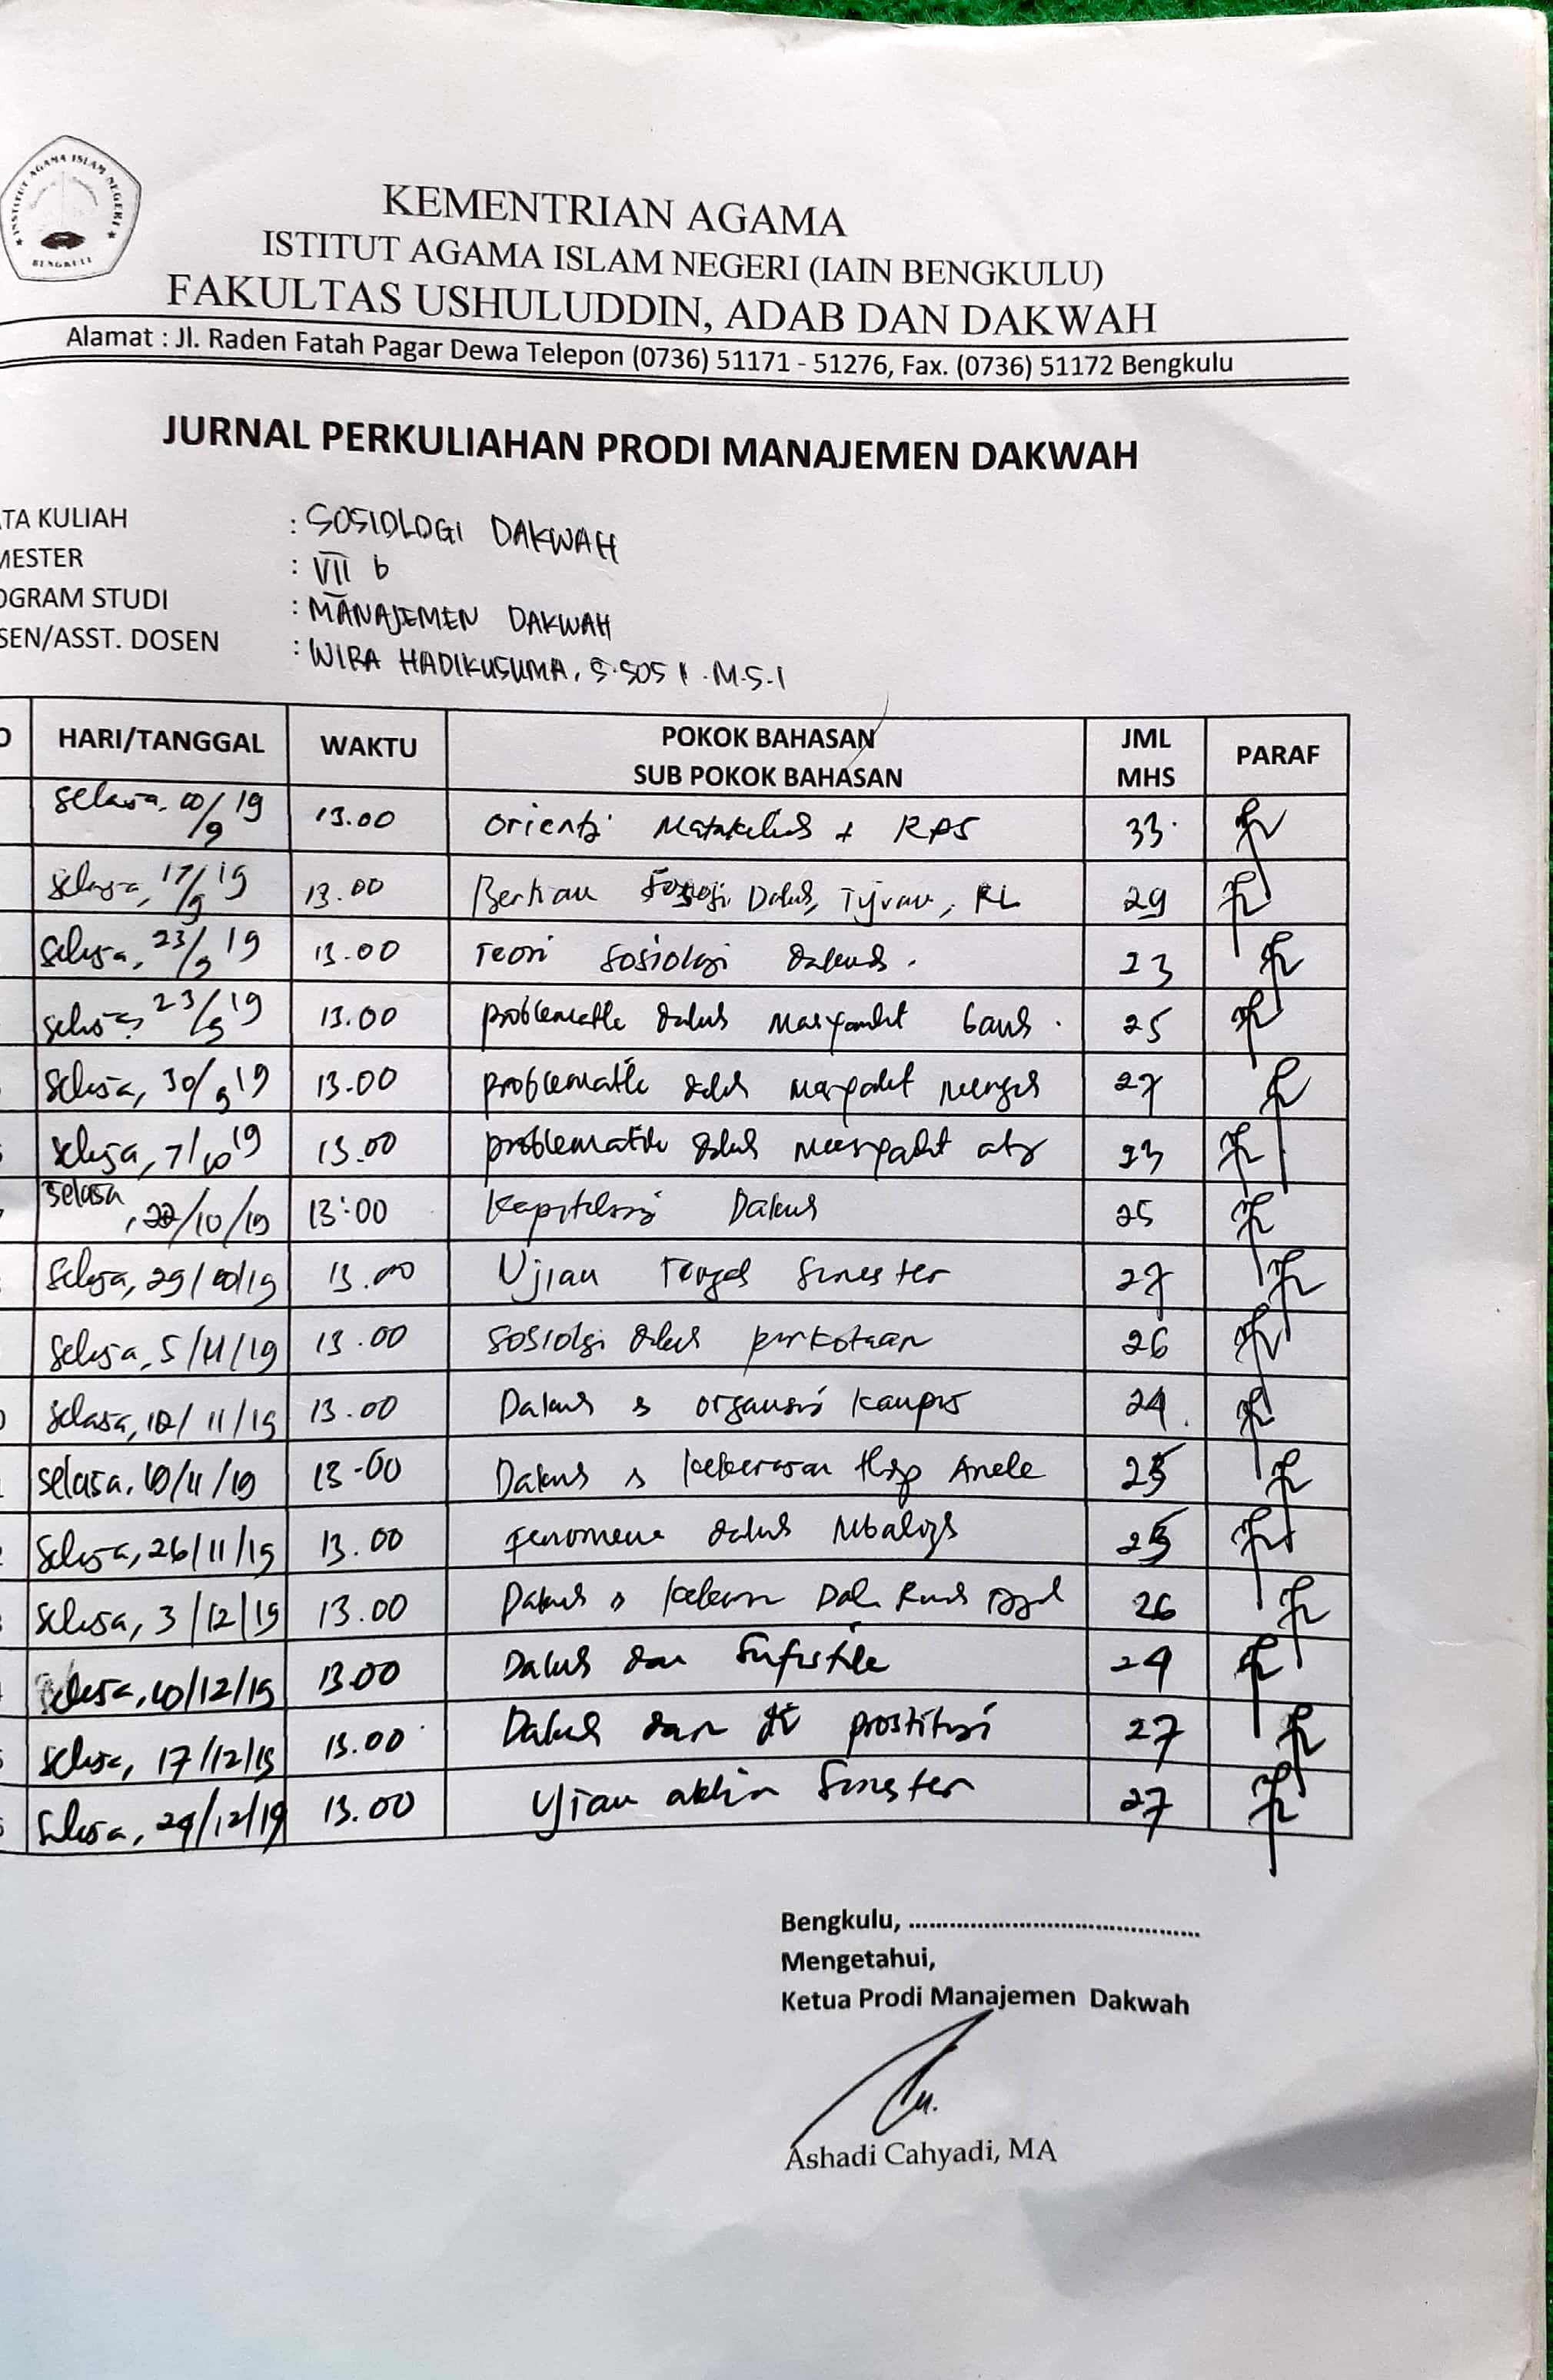 INSTITUT AGAMA ISLAM NEGERI
BENGKULU
KEMENTRIAN AGAMA
ISTITUT AGAMA ISLAM NEGERI (IAIN BENGKULU)
FAKULTAS USHULUDDIN, ADAB DAN DAKWAH
Alamat : Jl. Raden Fatah Pagar Dewa Telepon (0736) 51171 - 51276, Fax. (0736) 51172 Bengkulu
JURNAL PERKULIAHAN PRODI MANAJEMEN DAKWAH
TA KULIAH : SOSIOLOGI DAKWAH
MESTER : VII b
OGRAM STUDI : MANAJEMEN DAKWAH
SEN/ASST. DOSEN : WIRA HADIKUSUMA, S.SOS I. M.S.I
O HARI/TANGGAL WAKTU POKOK BAHASAN SUB POKOK BAHASAN JML MHS PARAF
Selasa, 10/9 19 13.00 + RPS 33
Selasa, 17/9 19 13.00 29
Selasa, 23/9 19 13.00 Teori Sosiologi dakwah. 23
Selasa, 23/9 19 13.00 dakwah 25
Selasa, 30/9 19 13.00 dakwah 27
Selasa, 7/10 19 13.00 problematik dakwah 23
Selasa, 22/10/19 13:00 Dakwah 25
Selasa, 29/10/19 13.00 Ujian Tengah Semester 27
Selasa, 5/11/19 13.00 Sosiologi dakwah perkotaan 26
Selasa, 12/11/19 13.00 Dakwah & organisasi kampus 24
Selasa, 19/11/19 13.00 Dakwah & kekerasan 25
Selasa, 26/11/19 13.00 fenomena dakwah 25
Selasa, 3/12/19 13.00 Dakwah & 26
Selasa, 10/12/19 13.00 Dakwah dan Sufistik 24
Selasa, 17/12/19 13.00 Dakwah dan prostitusi 27
Selasa, 24/12/19 13.00 Ujian akhir Semester 27
Bengkulu, ..........................................
Mengetahui,
Ketua Prodi Manajemen Dakwah
Ashadi Cahyadi, MA